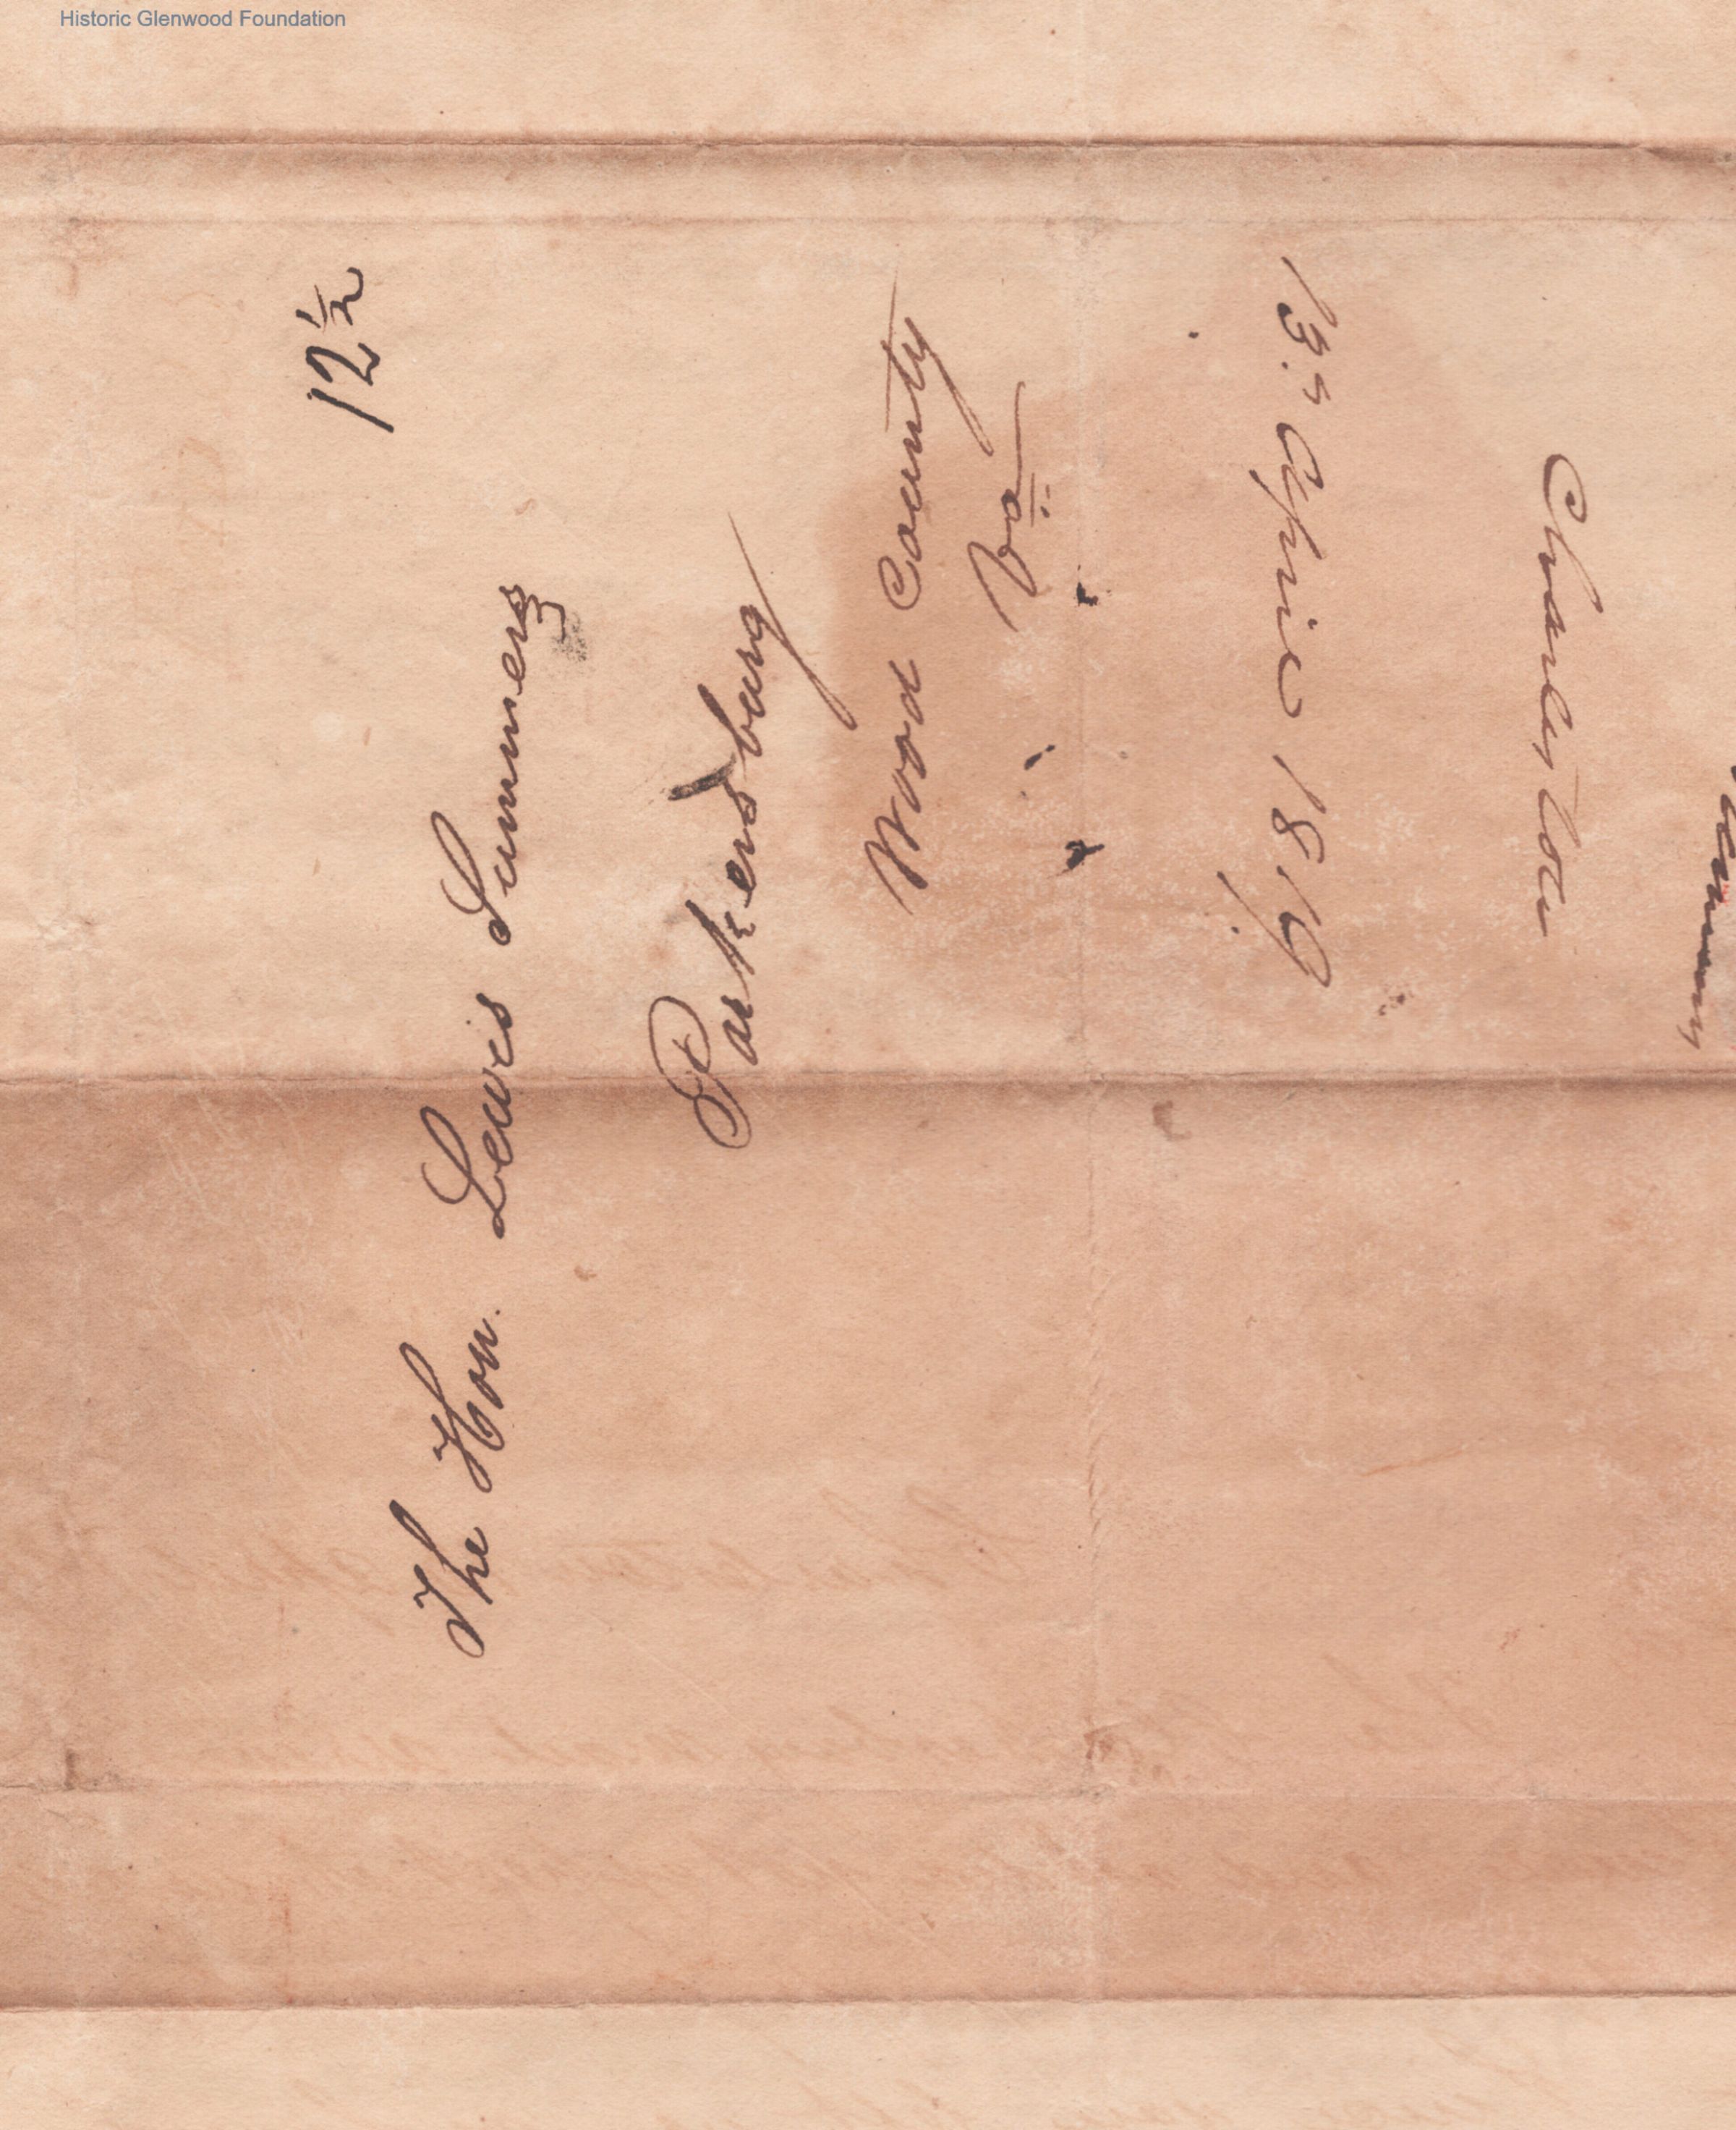 Historic Glenwood Foundation
12 1/2
The Hon. Lewis Summers
Parkersburg
Wood County
Va
Charleston
13. April 1819